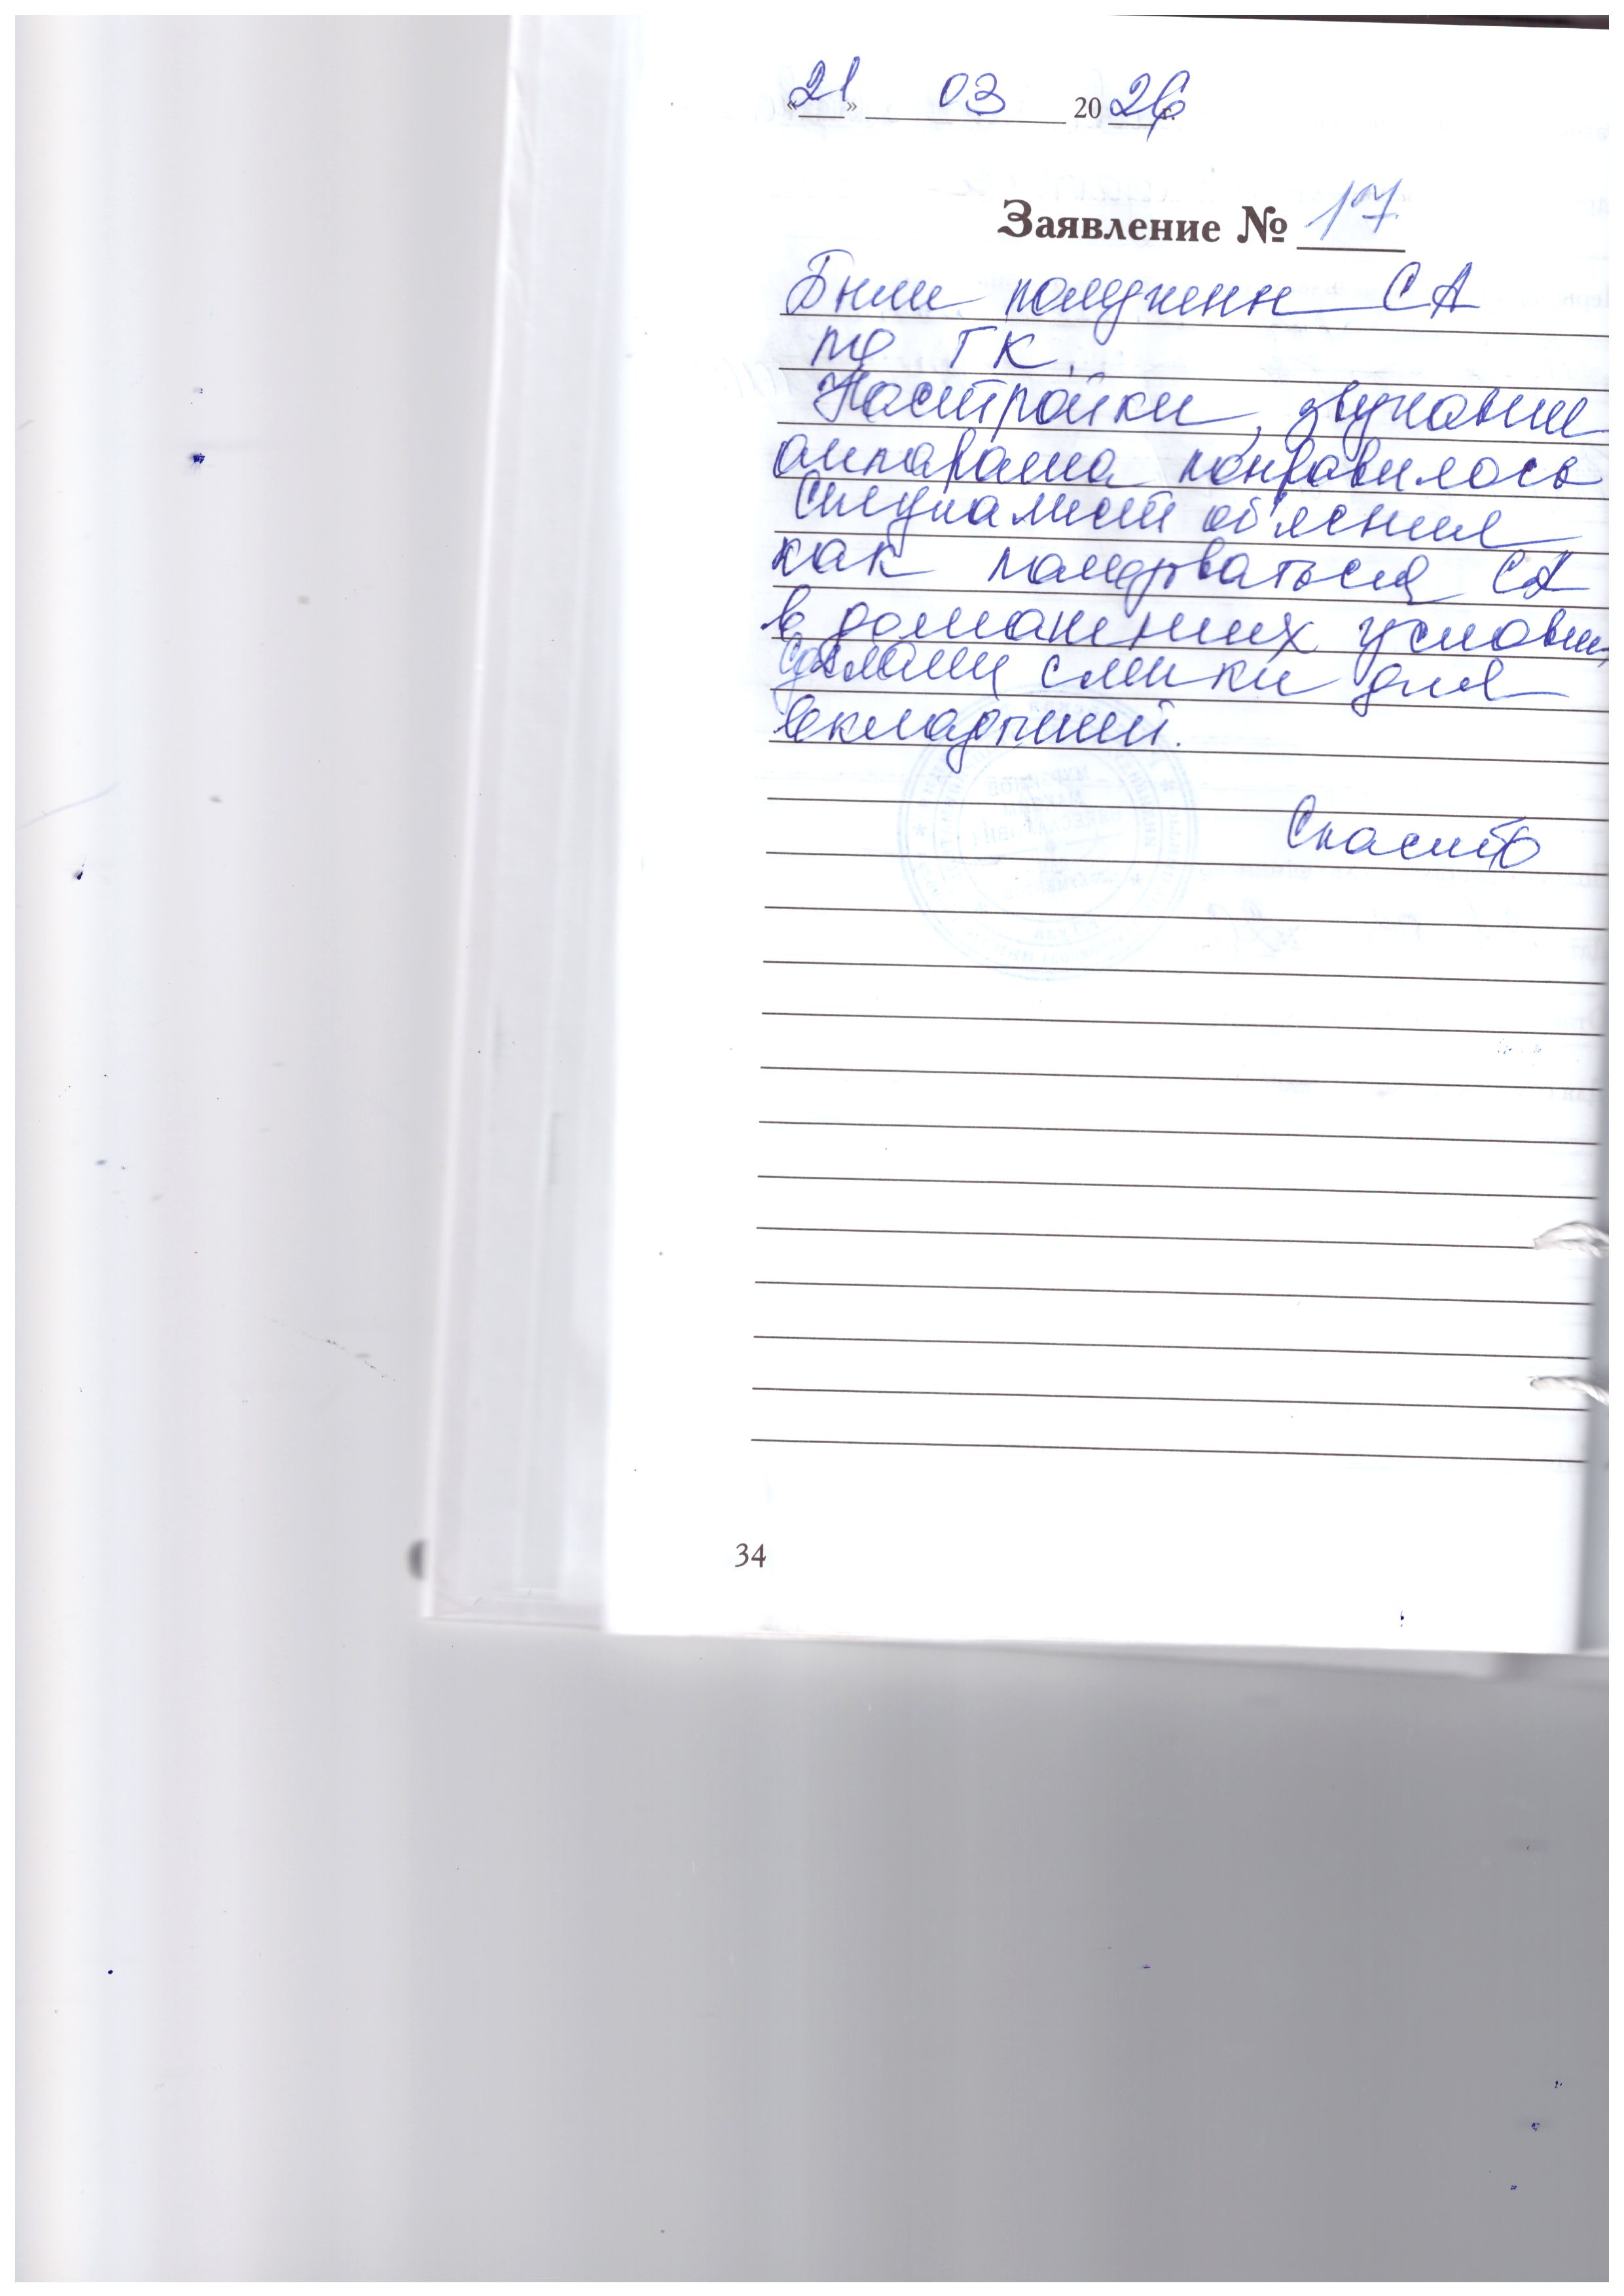 «21» 03 2026 г.
Заявление № 17
Были получены СА
по ГК.
Настройки, звучание
аппарата понравилось
Специалист об'яснил
как пользоваться СА
в домашних условиях
сделали слепки для
вкладышей.
Спасибо
34